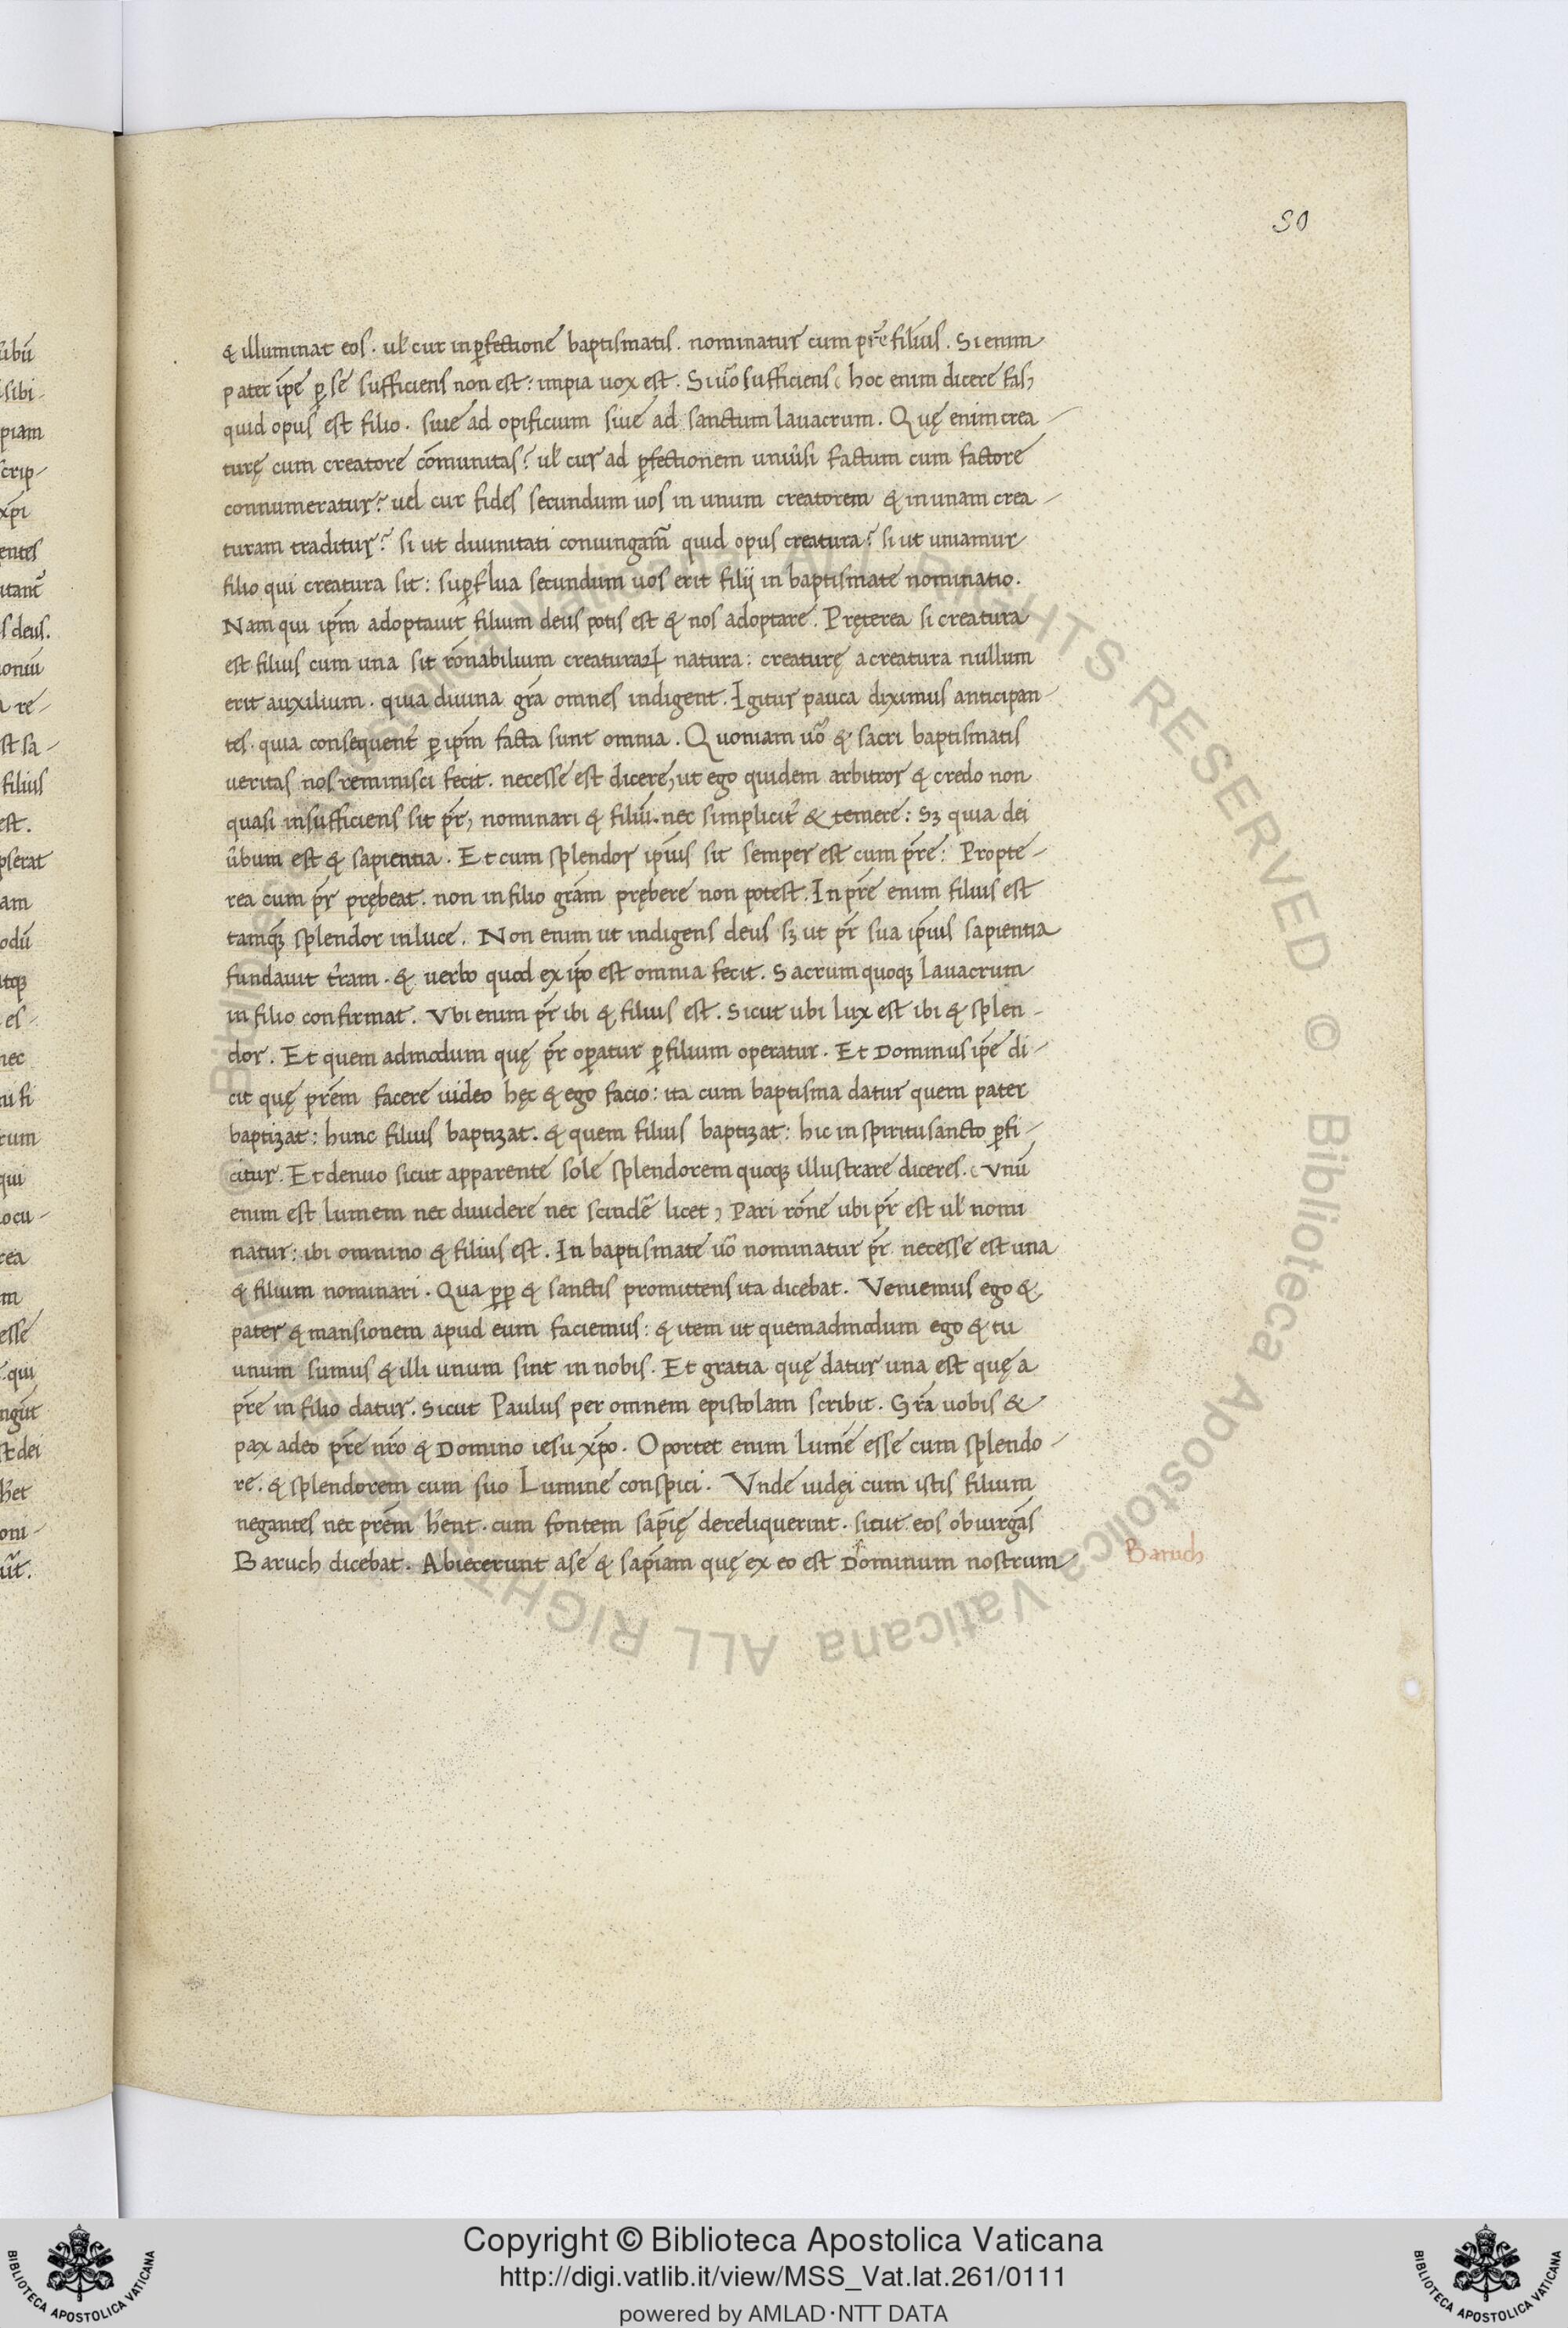 50
& illuminat eos. ul̄ cur in ꝑfectione baptismatis. nominatur cum pr̄e filius. Si enim
pater ip̄e ꝑ se sufficiens non est: impia uox est. Si uō sufficiens (hoc enim dicere fas)
quid opus est filio. siue ad opificium siue ad sanctum lauacrum. Quę enim crea-
turę cum creatore cōmunitas? ul̄ cur ad ꝑfectionem uniūsi factum cum factore
connumeratur? uel cur fides secundum uos in unum creatorem & in unam crea-
turam traditur? si ut diuinitati coniungam̄ quid opus creatura? si ut uniamur
filio qui creatura sit: suꝑflua secundum uos erit filij in baptismate nominatio.
Nam qui ip̄m adoptauit filium deus potis est & nos adoptare. Pręterea si creatura
est filius cum una sit rōnabilium creaturaꝝ natura: creaturę a creatura nullum
erit auxilium. quia diuina gr̄a omnes indigent. Igitur pauca diximus anticipan-
tes. quia consequent̄ ꝑ ip̄m facta sunt omnia. Quoniam uō & sacri baptismatis
veritas nos reminisci fecit. necesse est dicere, ut ego quidem arbitror & credo non
quasi insufficiens sit pr̄, nominari & filiū. nec simplicit̄ & temere: Sꝫ quia dei
ūbum est & sapientia. Et cum splendor ipius sit semper est cum pr̄e: Propte-
rea cum pr̄ prębeat. non in filio gr̄am prębere non potest. In pr̄e enim filius est
tamqꝫ splendor in luce. Non enim ut indigens deus sꝫ ut pr̄ sua ipius sapientia
fundauit t̄ram. & uerbo quod ex ip̄o est omnia fecit. Sacrum quoqꝫ lauacrum
in filio confirmat. Vbi enim pr̄ ibi & filius est. Sicut ubi lux est ibi & splen-
dor. Et quem admodum quę pr̄ oꝑatur ꝑ filium operatur. Et Dominus ip̄e di-
cit quę prēm facere uideo hęc & ego facio: ita cum baptisma datur quem pater
baptizat: hunc filius baptizat. & quem filius baptizat: hic in spiritu sancto ꝑfi-
citur. Et denuo sicut apparente sole splendorem quoqꝫ illustrare diceres. (Vnū
enim est lumem nec diuidere nec scindē licet) Pari rōne ubi pr̄ est ul̄ nomi
natur: ibi omnino & filius est. In baptismate uō nominatur pr̄. necesse est una
& filium nominari. Qua ꝓꝑ & sanctis promittens ita dicebat. Veniemus ego &
pater & mansionem apud eum faciemus: & item ut quemadmodum ego & tu
unum sumus & illi unum sint in nobis. Et gratia quę datur una est quę a
pr̄e in filio datur. Sicut Paulus per omnem epistolam scribit. Gr̄a uobis &
pax a deo pr̄e nr̄o & Domino iesu xp̄o. Oportet enim lumē esse cum splendo-
re. & splendorem cum suo Lumine conspici. Vnde iudęi cum istis filium
negantes nec prēm h̄ent. cum fontem sap̄ię dereliquerint. sicut eos obiurgās
Baruch dicebat. Abiecerunt a se & sap̄iam quę ex eo est Dominum nostrum
Baruch
Copyright © Biblioteca Apostolica Vaticana
http://digi.vatlib.it/view/MSS_Vat.lat.261/0111
powered by AMLAD·NTT DATA